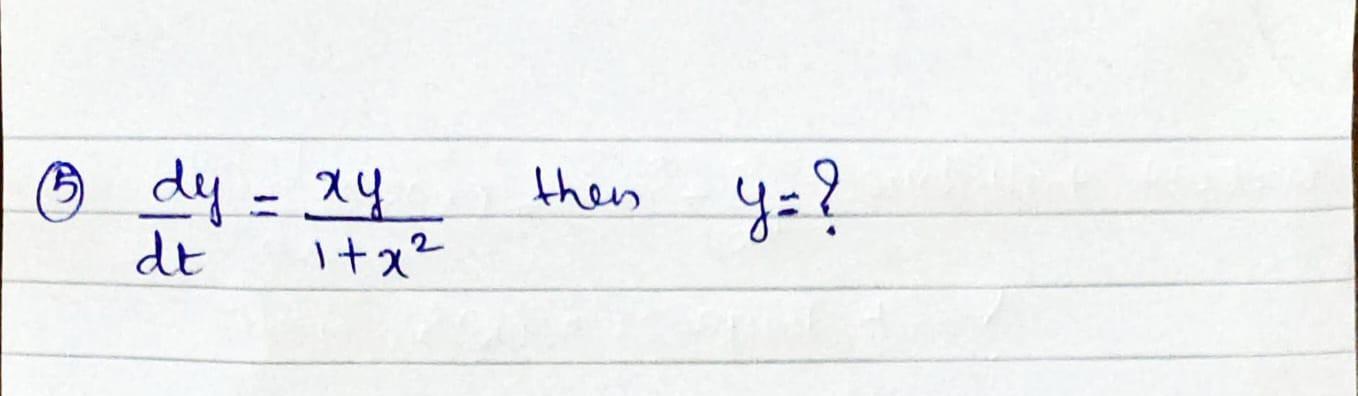 ⑤ dy/dt = xy/(1+x²) then y=?